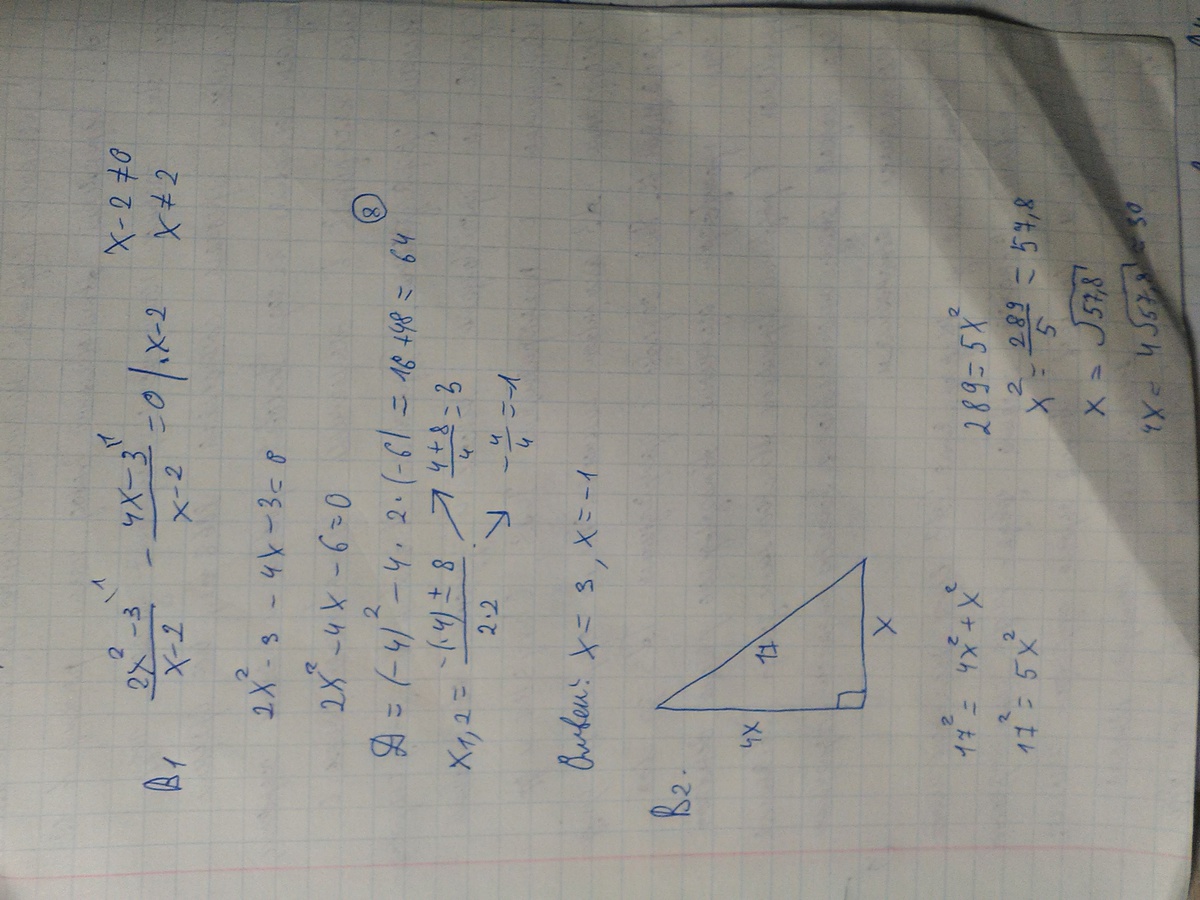 B1 (2x² - 3)/(x - 2) - (4x - 3)/(x - 2) = 0 | · x - 2     x - 2 ≠ 0
x ≠ 2
2x² - 3 - 4x - 3 = 0
2x² - 4x - 6 = 0
D = (-4)² - 4 · 2 · (-6) = 16 + 48 = 64 (8)
x1,2 = (-(-4) ± 8)/(2·2) ↗ (4 + 8)/4 = 3
↘ -4/4 = -1
Ответ: x = 3, x = -1
B2.
4x
17
x
17² = 4x² + x²
17² = 5x²
289 = 5x²
x² = 289/5 = 57,8
x = √57,8
4x = 4√57,8 = 30